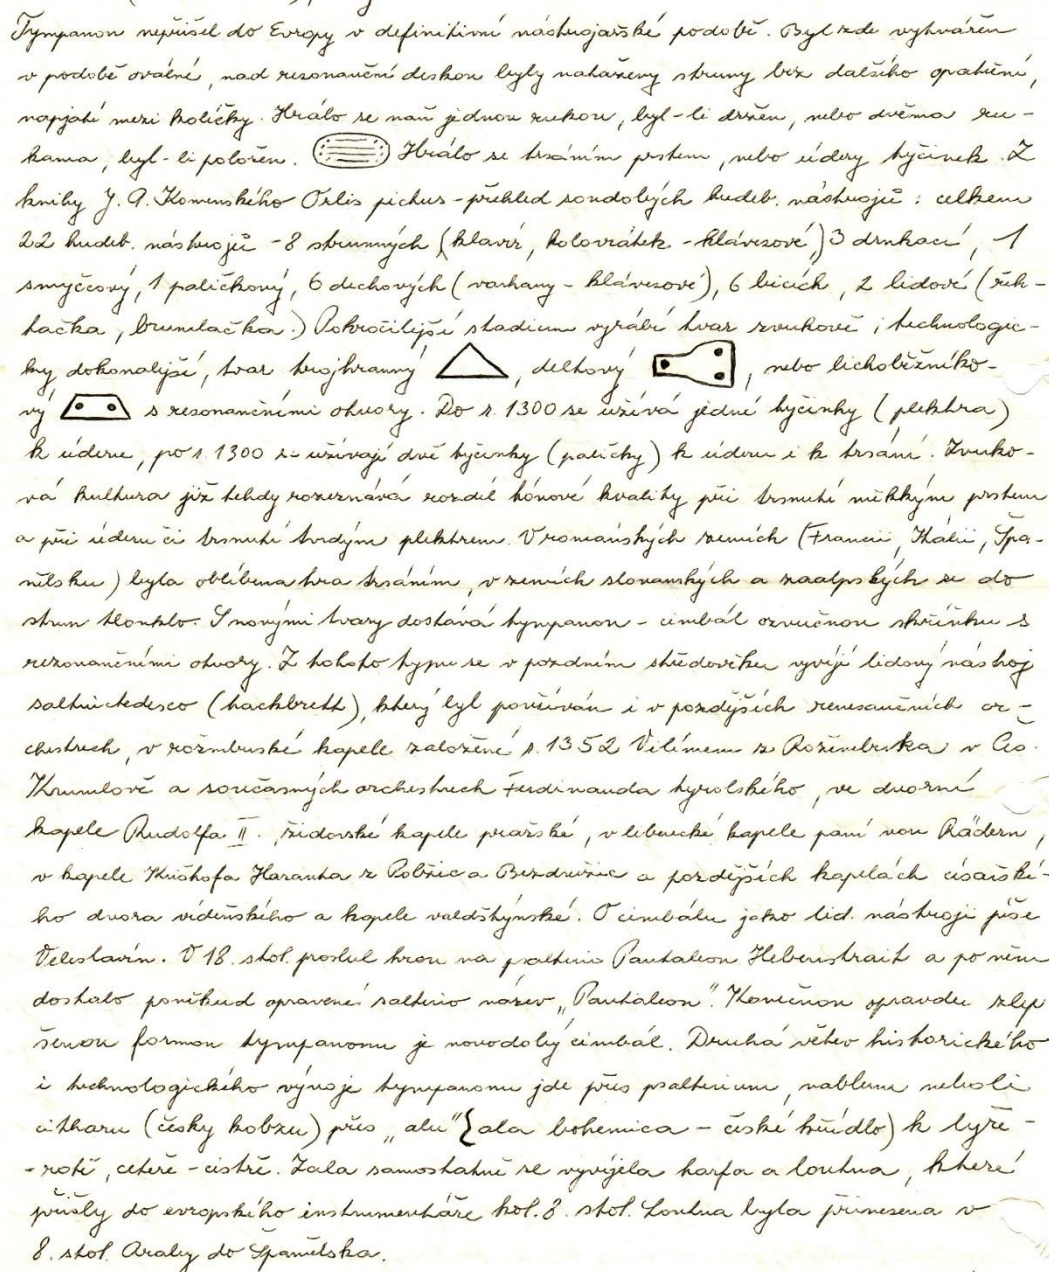 Tympanon nepřišel do Evropy v definitivní nástrojařské podobě. Byl zde vytvářen
v podobě oválné, nad resonanční deskou byly nataženy struny bez dalšího opatření,
napjaté mezi kolíčky. Hrálo se naň jednou rukou, byl-li držen, nebo dvěma ru-
kama, byl-li položen. Hrálo se trsáním prstem, nebo údery tyčinek. Z
knihy J. A. Komenského Orbis pictus - přehled soudobých hudeb. nástrojů: celkem
22 hudeb. nástrojů - 8 strunných (klavír, kolovrátek - klávesové,) 3 drnkací, 1
smyčcový, 1 paličkový, 6 dechových (varhany - klávesové), 6 bicích, 2 lidové (řeh-
tačka, brumlačka.) Pokročilejší stadium vyrábí tvar zvukově i technologic-
ky dokonalejší, tvar trojhranný , deltový , nebo lichoběžníko-
vý s resonančními otvory. Do r. 1300 se užívá jedné tyčinky (plektra)
k úderu, po r. 1300 se užívají dvě tyčinky (paličky) k úderu i k trsání. Zvuko-
vá kultura již tehdy rozeznává rozdíl tónové kvality při trsnutí měkkým prstem
a při úderu či trsnutí tvrdým plektrem. V románských zemích (Francii, Itálii, Špa-
nělsku) byla oblíbena hra trsáním, v zemích slovanských a zaalpských se do
strun tlouklo. S novými tvary dostává tympanon - cimbál ozvučnou skříňku s
rezonančními otvory. Z tohoto typu se v pozdním středověku vyvíjí lidový nástroj
salterio tedesco (hackbrett), který byl používán i v pozdějších renesančních or-
chestrech, v rožmberské kapele založené r. 1352 Vilímem z Rožmberka v Čes.
Krumlově a současných orchestrech Ferdinanda tyrolského, ve dvorní
kapele Rudolfa II. židovské kapele pražské, v liberecké kapele paní von Rädern,
v kapele Kryštofa Haranta z Polžic a Bezdružic a pozdějších kapelách císařské-
ho dvora vídeňského a kapele valdštýnské. O cimbálu jako lid. nástroji píše
Veleslavín. V 18. stol. proslul hrou na psalterio Pantaleon Hebenstreit a po něm
dostalo poněkud opravené salterio název „Pantaleon". Konečnou opravdu zlep
šenou formou tympanonu je novodobý cimbál. Druhá větev historického
i technologického vývoje tympanonu jde přes psalterium, nablum neboli
citharu (česky kobzu) přes „alu" {ala bohemica - české křídlo) k lyře -
- rotě, cetěře - cistře. Zcela samostatně se vyvíjela harfa a loutna, které
přišly do evropského instrumentáře kol. 8. stol. Loutna byla přinesena v
8. stol. Araby do Španělska.